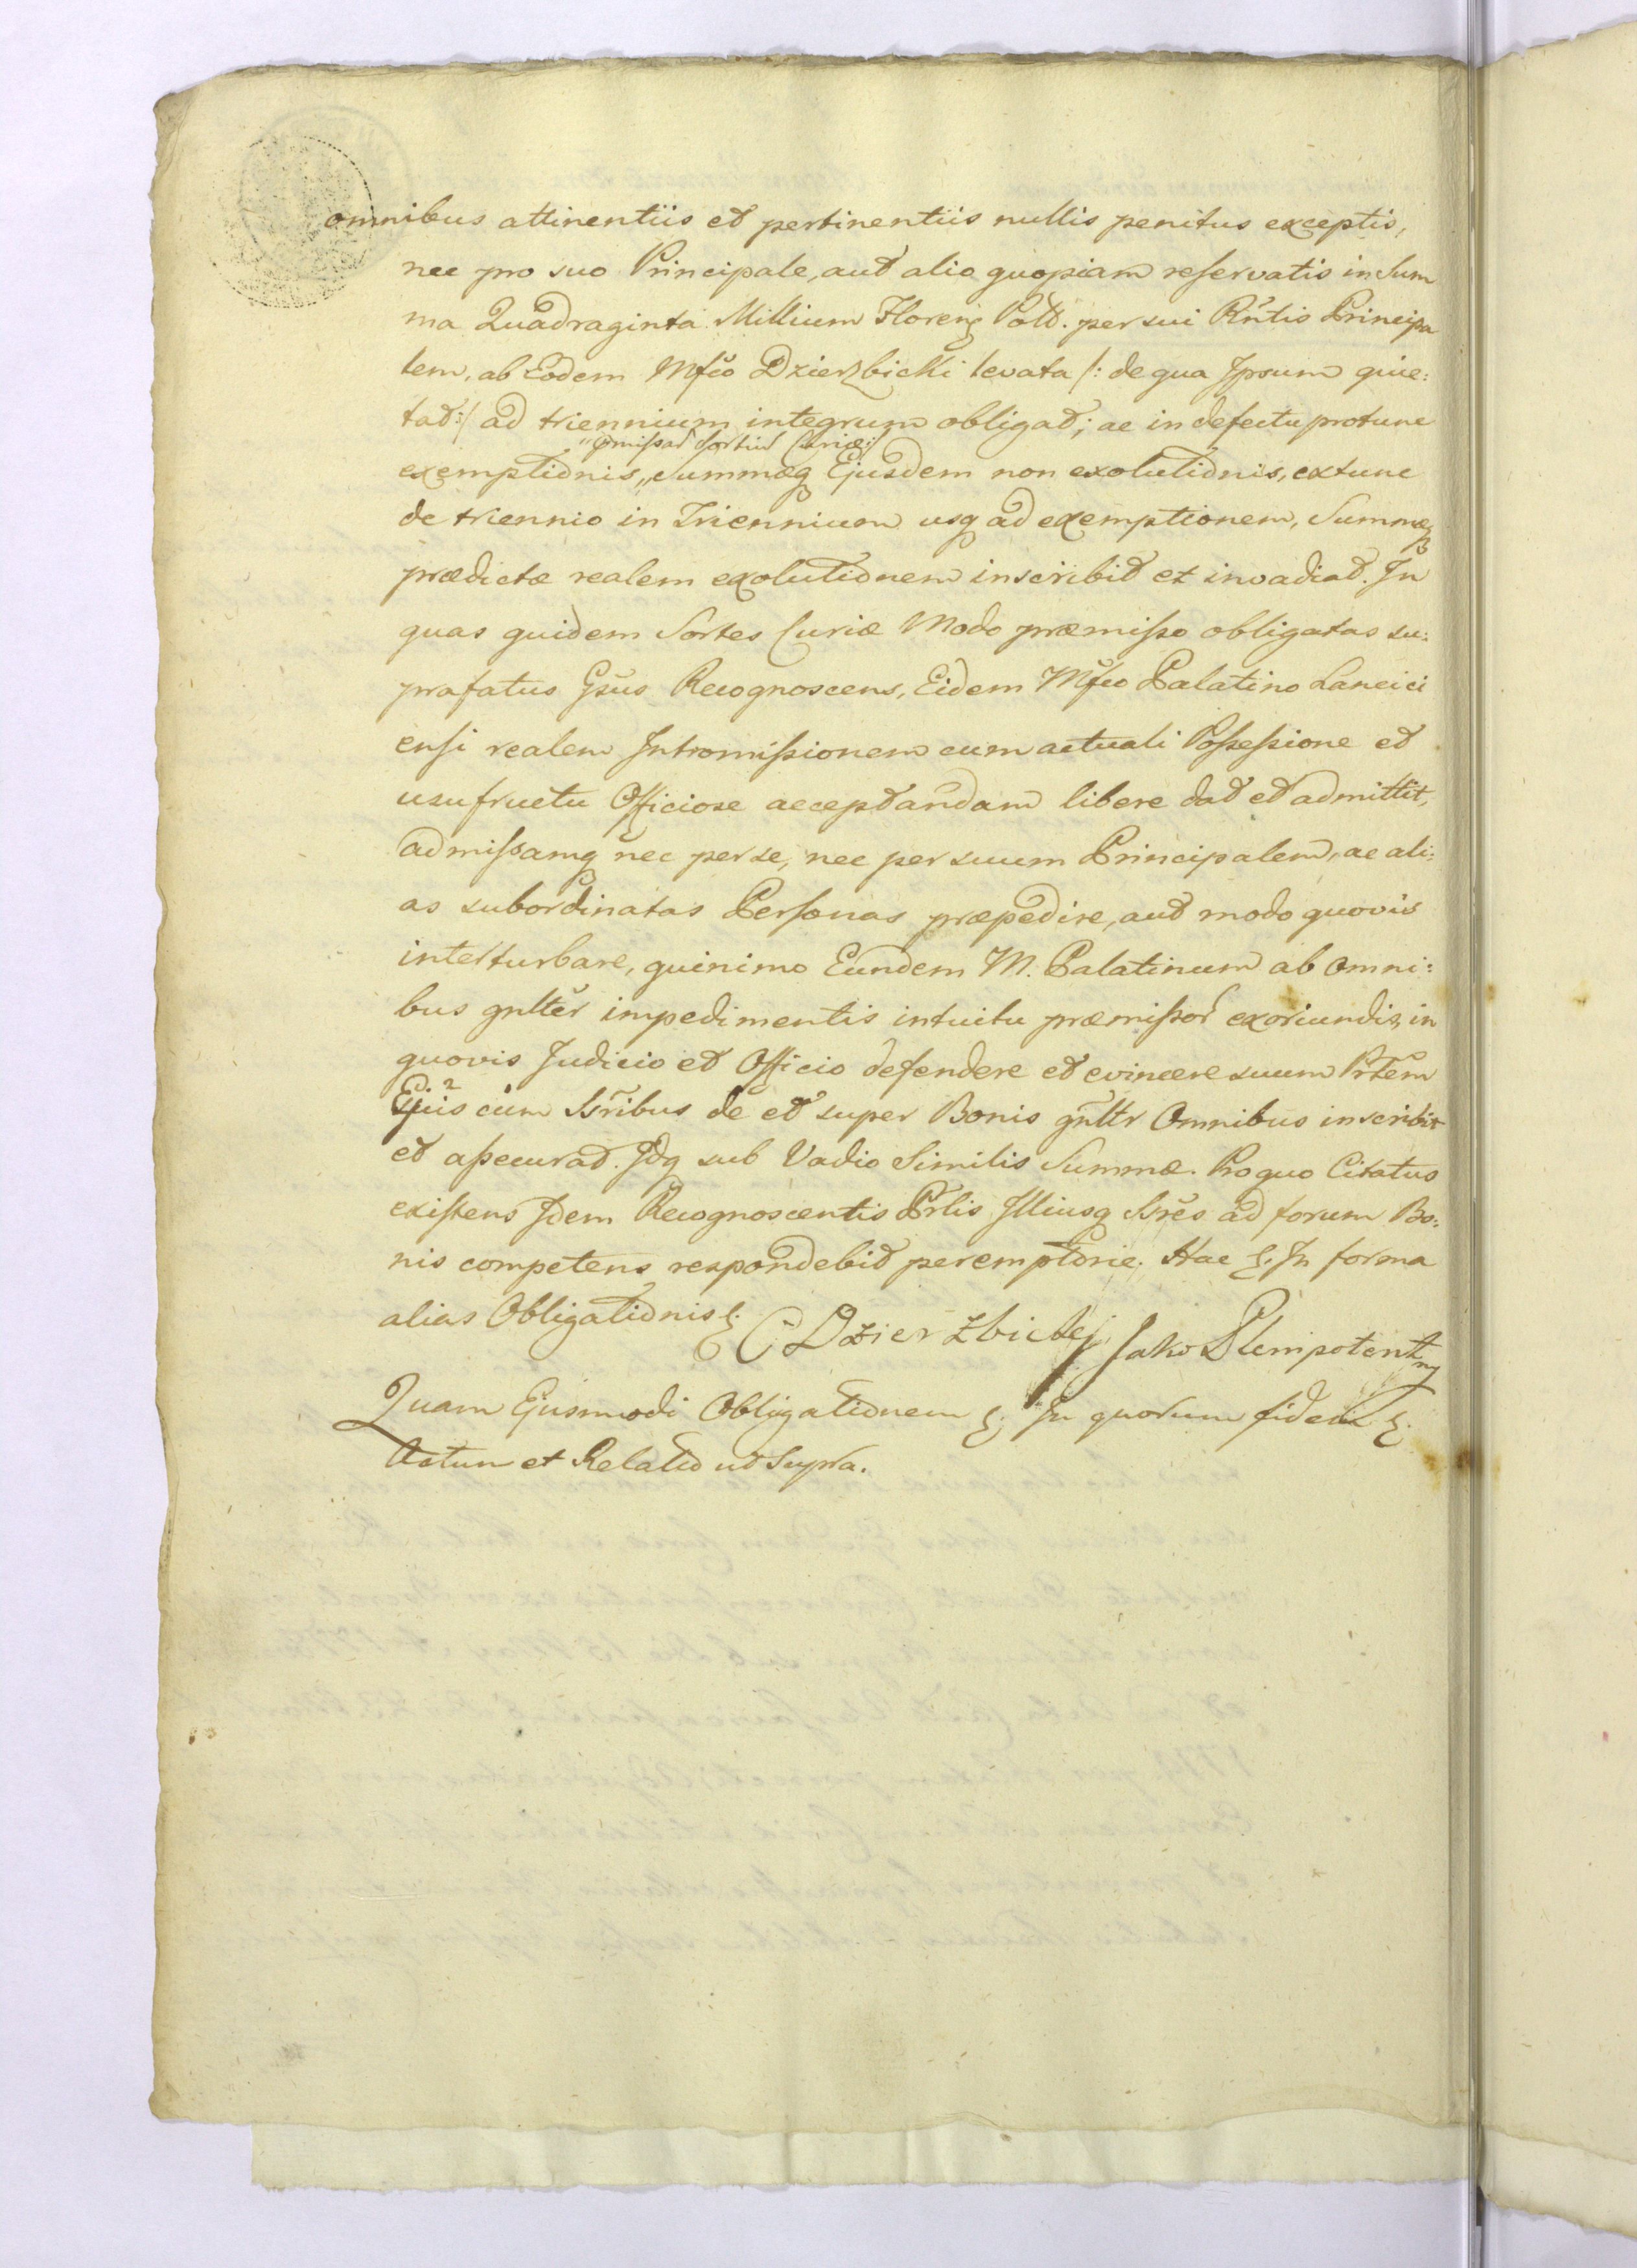 omnibus attinentiis et pertinentiis nullis penitus exceptis,
nec pro suo Principale, aut alio quopiam reservatis in Sum
ma Quadraginta Millium Floreng Poll. per sui Rntis Principa
lem, ab Eodem Mfco Dzierzbicki levata /: de qua Ipsum quie:
tat:/ ad triennium integrum obligat; ac in defectu protunc
"pmissar Sortiu Curiæ:/
exemptionis,, Summæq Ejusdem non exolutionis, extunc
de triennio in Triennium usq ad exemptionem, Summæq
prædictæ realem exolutionem inscribit et invadiat. In
quas quidem Sortes Curiæ Modo præmisso obligatas su:
prafatus Gsus Recognoscens, Eidem Mfco Palatino Lancici
ensi realem Intromissionem cum actuali Possessione et
usufructu Officiose acceptandam libere dat et admittit,
admissamq nec per se, nec per suum Principalem, ac ali:
as subordinatas Personas præpedire, aut modo quovis
interturbare, quinimo Eundem M. Palatinum ab omni:
bus gnlter impedimentis intuitu præmissor exoriundis, in
quovis Judicio et Officio defendere et evincere suum Prlem
Ejus cum Ssribus de et super Bonis gnltr Omnibus inscribit
et assecurat. Idq sub Vadio Similis Summæ. Pro quo Citatus
existens Idem Recognoscentis Prlis Illiusq Ssres ad forum Bo:
nis competens respondebit peremptorie. Hac &. In forma
alias Obligationis &.
C Dzierzbicki Jako Plenipotent
ny
Quam Ejusmodi Obligationem &. In quorum fidem &.
Actum et Relatio ut Supra.